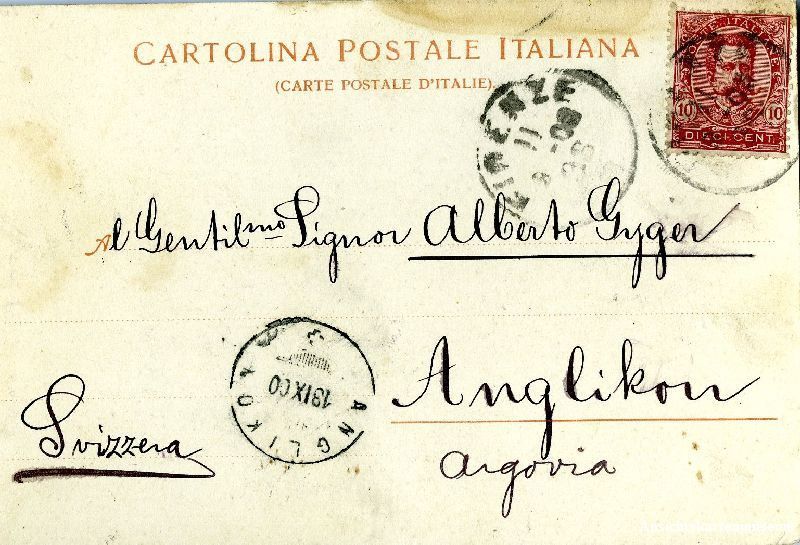 CARTOLINA POSTALE ITALIANA
(CARTE POSTALE D'ITALIE)
POSTE ITALIANE
10 10
DIECI·CENT.
FIRENZE
11
Al Gentilmo Signor Alberto Gyger
Anglikon
Argovia
Svizzera
ANGLIKON
13 IX 00
3